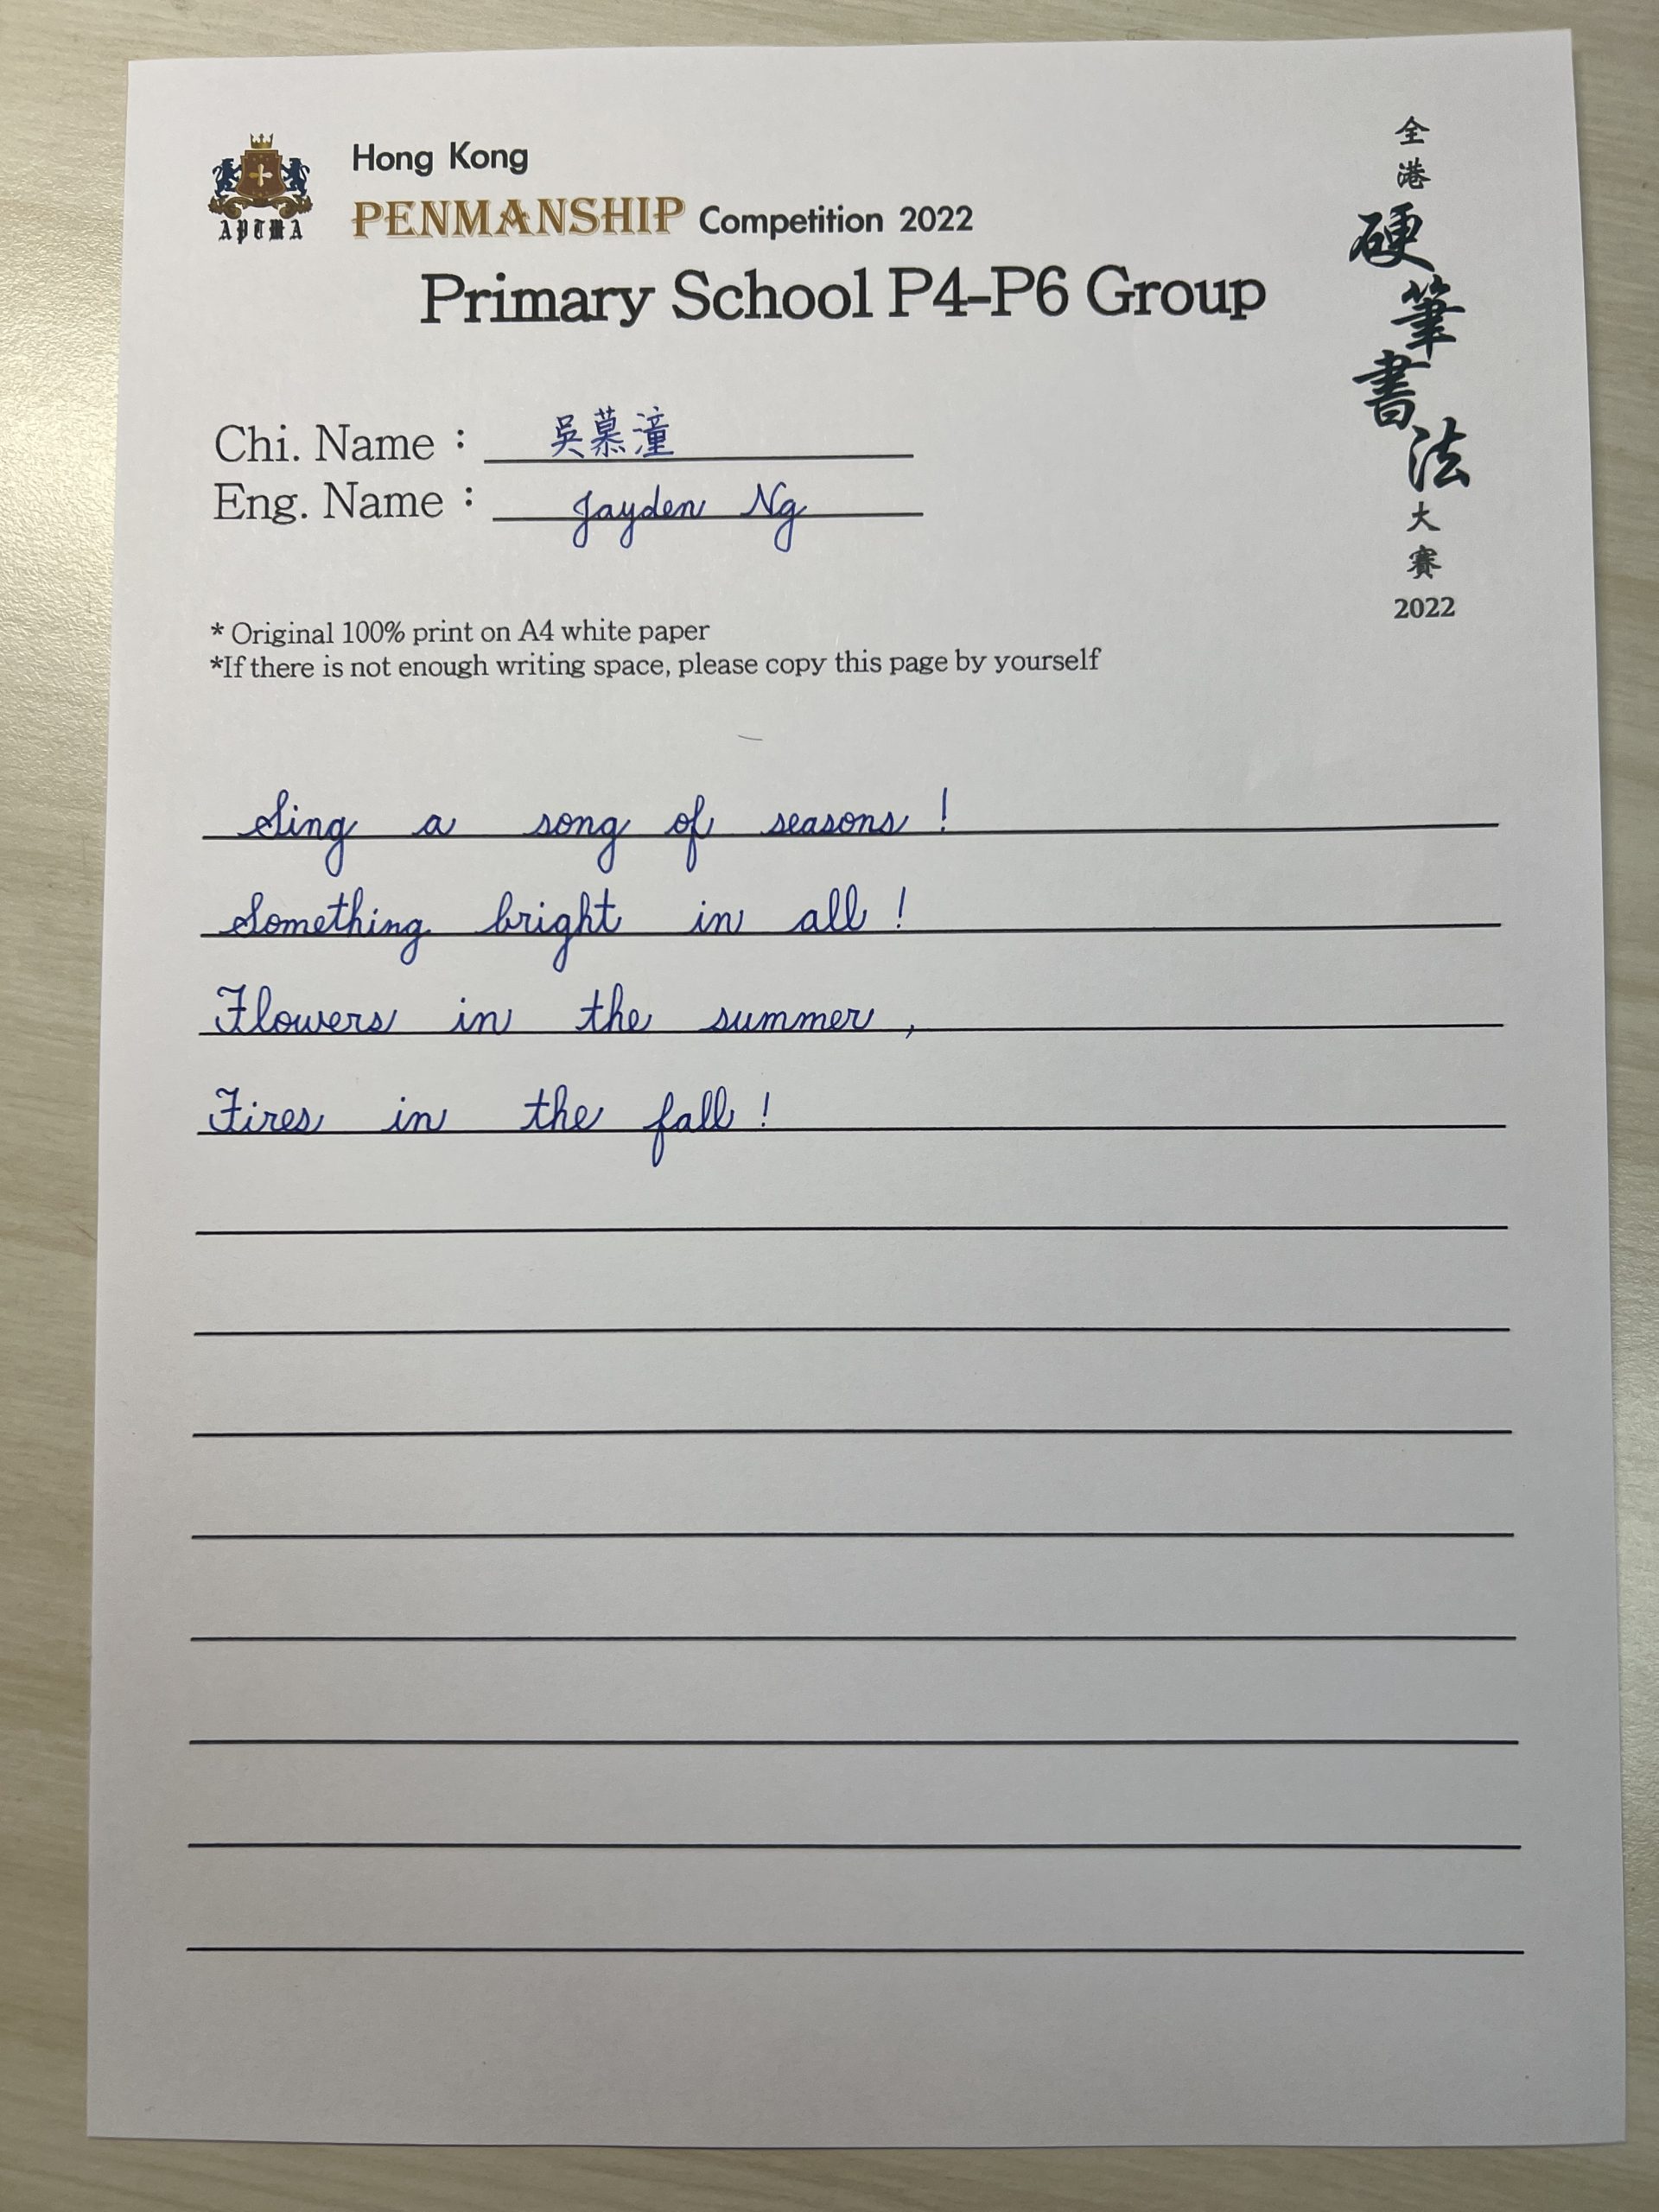 APTMA
Hong Kong
PENMANSHIP Competition 2022
Primary School P4-P6 Group
全港硬筆書法大賽
2022
Chi. Name : 吳慕潼
Eng. Name : Jayden Ng
* Original 100% print on A4 white paper
*If there is not enough writing space, please copy this page by yourself
Sing a song of seasons !
Something bright in all !
Flowers in the summer ,
Fires in the fall !